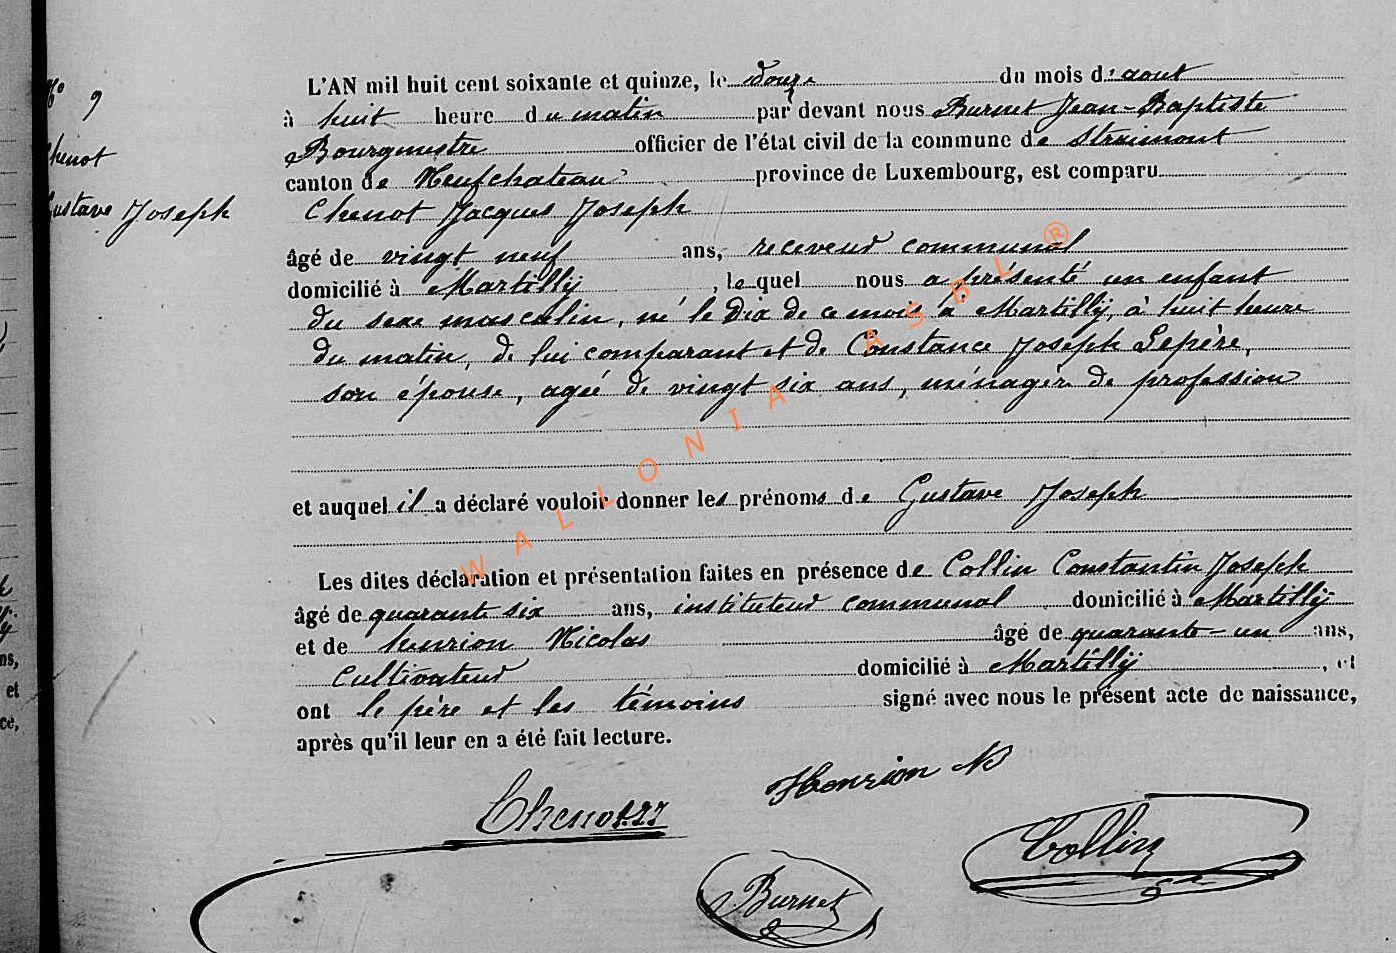 N° 9
Chenot
Gustave Joseph
L'AN mil huit cent soixante et quinze, le douze du mois d'aout
à huit heure du matin par devant nous Burnet Jean-Baptiste
Bourgmestre officier de l'état civil de la commune de Straimont
canton de Neufchateau province de Luxembourg, est comparu
Chenot Jacques Joseph
âgé de vingt neuf ans, receveur communal
domicilié à Martilly, le quel nous a présenté un enfant
du sexe masculin, né le dix de ce mois à Martilly, à huit heure
du matin, de lui comparant et de Constance Joseph Lepère,
son épouse, agée de vingt six ans, ménagère de profession
et auquel il a déclaré vouloir donner les prénoms de Gustave Joseph
Les dites déclaration et présentation faites en présence de Collin Constantin Joseph
âgé de quarante six ans, instituteur communal domicilié à Martilly
et de henrion Nicolas âgé de quarante-un ans,
Cultivateur domicilié à Martilly, et
ont le père et les témoins signé avec nous le présent acte de naissance,
après qu'il leur en a été fait lecture.
Henrion N
Chenot JJ
Collin
Burnet
WALLONIA ASBL ®